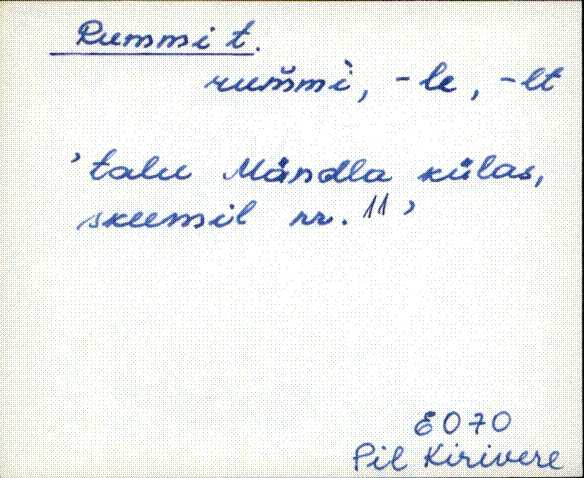 Rummi t.
rum̆mì, -le, -lt
’talu Mändla külas,
skeemil nr. 11’
E070
Pil Kirivere